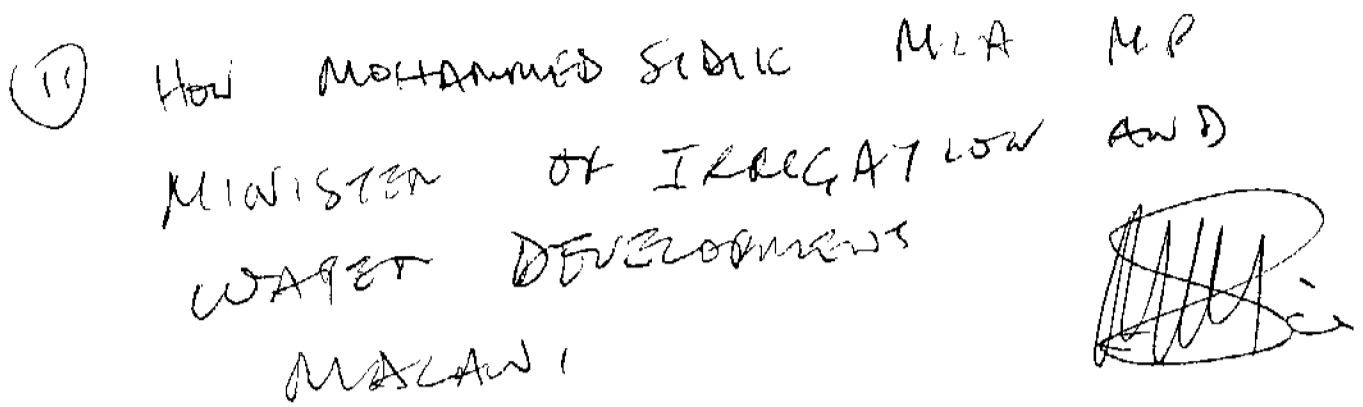 (11) HON MOHAMMED SIDIK MIA MP
MINISTER OF IRRIGATION AND
WATER DEVELOPMENT
MALAWI